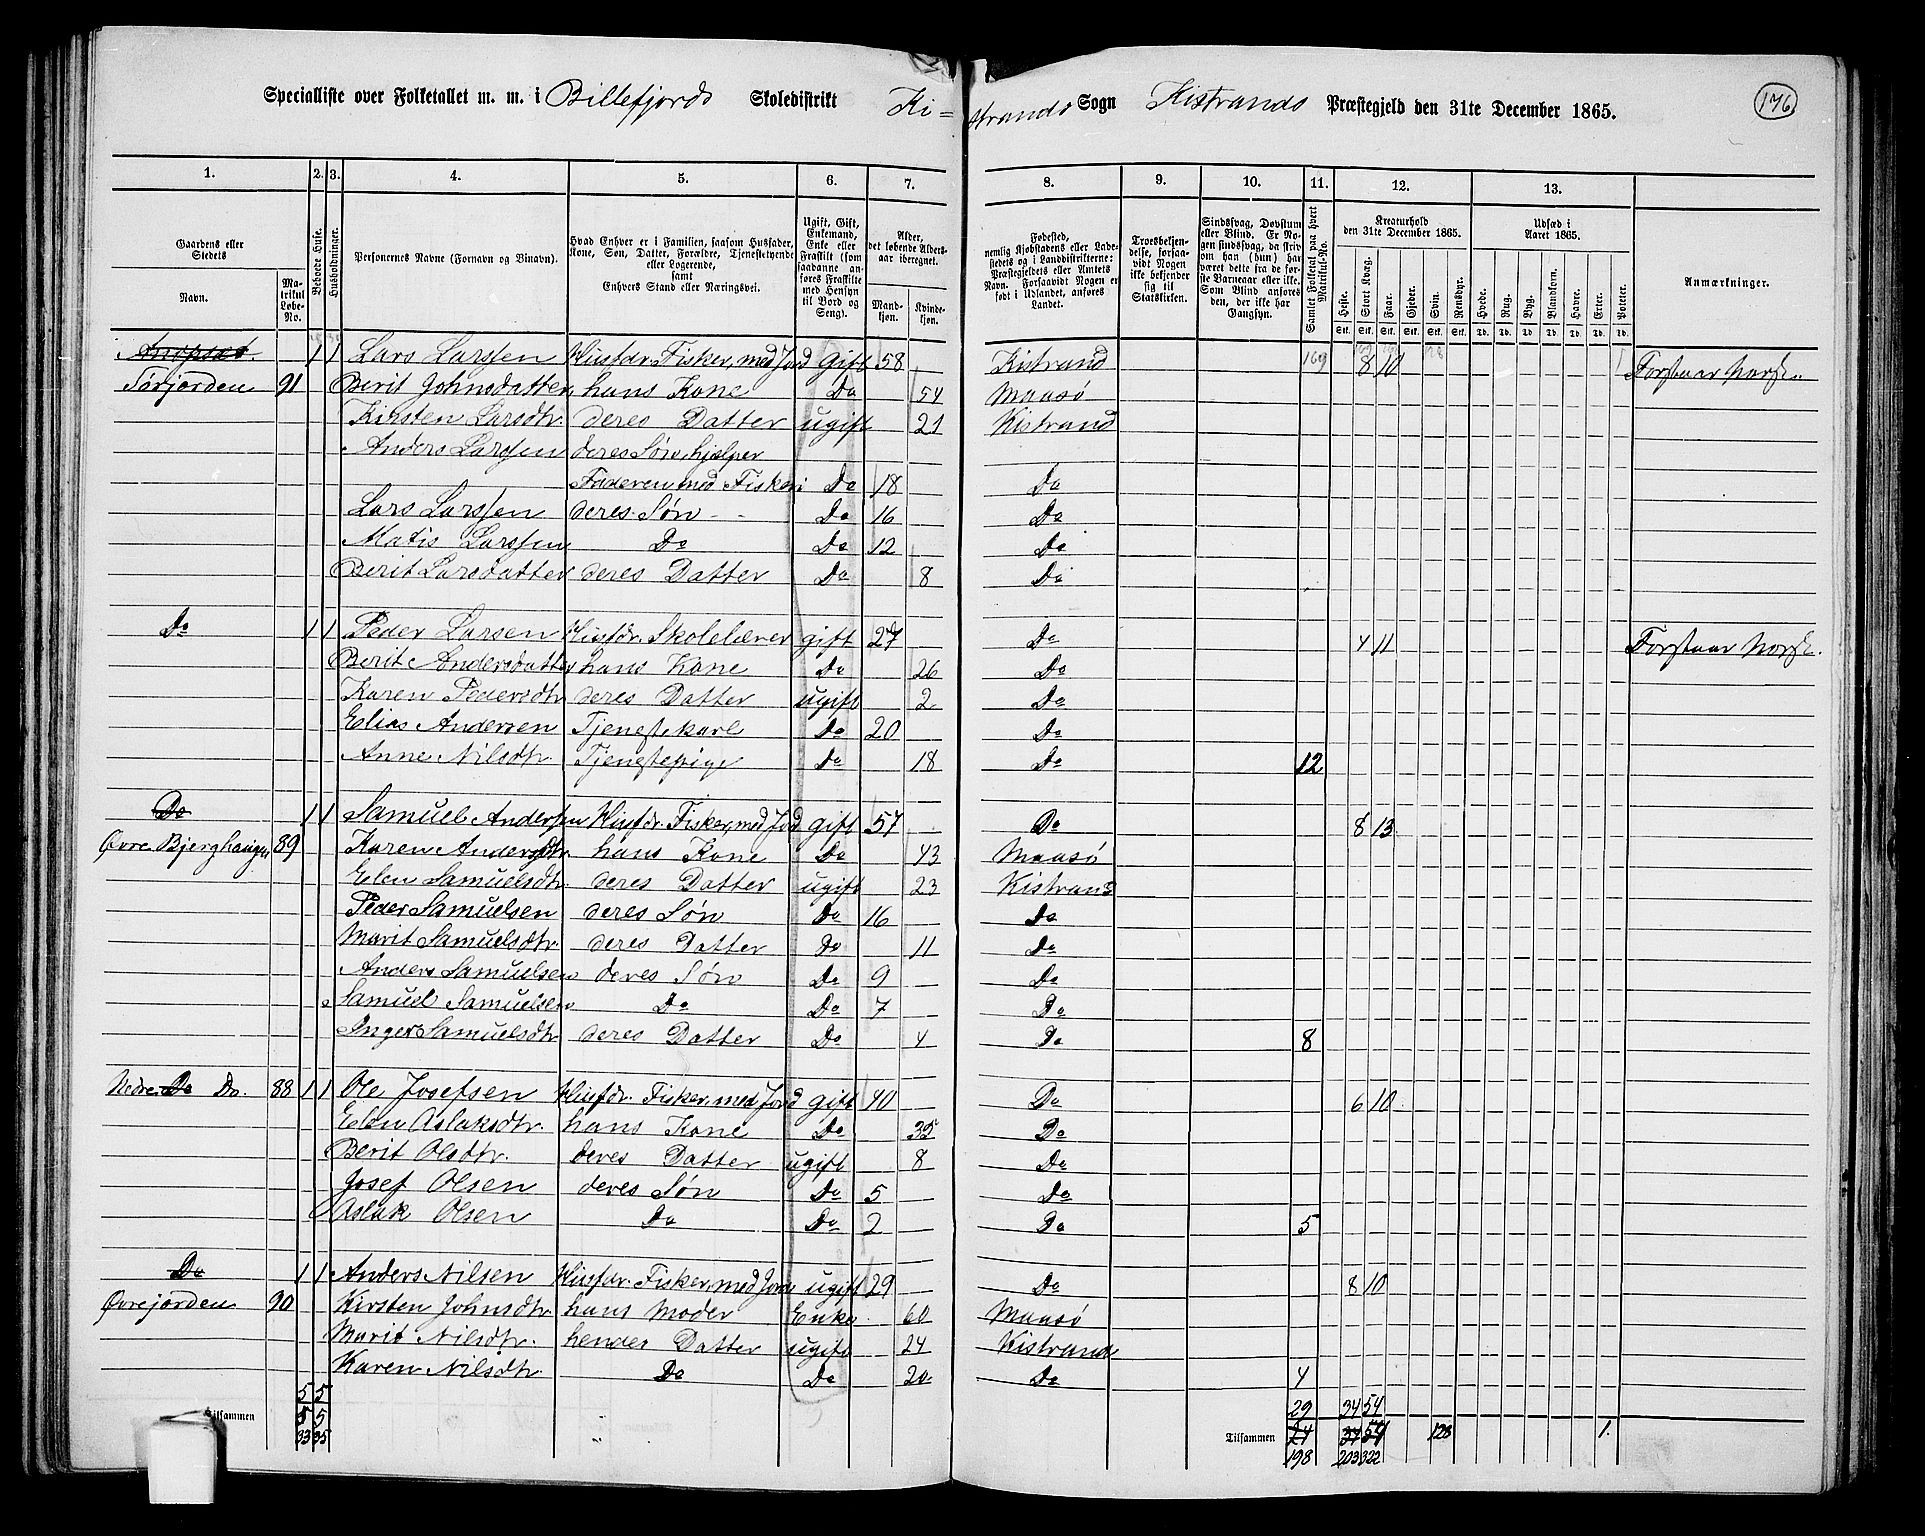 Specialliste over Folketallet m. m. i Billefjords Skoledistrikt Ki= strands Sogn Kistrands Præstegjeld den 31te December 1865. 176
1. 2. 3. 4. 5. 6. 7. 8. 9. 10. 11. 12. 13.
Gaardens eller Stedets
Navn.
Matrikul Løbe-No.
Beboede Huse.
Husholdninger.
Personernes Navne (Fornavn og Vinavn).
Hvad Enhver er i Familien, saasom Husfader, Kone, Søn, Datter, Forældre, Tjenestetyende eller Logerende,
samt
Enhvers Stand eller Næringsvei.
Ugift, Gift, Enkemand, Enke eller Fraskilt (som saadanne anføres Fraskilte med Hensyn til Bord og Seng).
Alder, det løbende Aldersaar iberegnet.
Mandkjøn.
Kvindekjøn.
Fødested, nemlig Kjøbstadens eller Ladestedets og i Landdistrikterne: Præstegjeldets eller Amtets Navn. Forsaavidt Nogen er født i Udlandet, anføres Landet.
Troesbekjendelse, forsaavidt Nogen ikke bekjender sig til Statskirken.
Sindssvag, Døvstum eller Blind. Er Nogen sindssvag, da skriv om han (hun) har været dette fra de første Barneaar eller ikke. Som Blind anføres den, der ikke har Gangsyn.
Samlet Folketal paa hvert Matrikul-No.
Kreaturhold den 31te December 1865.
Heste. Stort Kvæg. Faar. Gjeder. Svin. Rensdyr.
Udsæd i Aaret 1865.
Hvede. Rug. Byg. Blandkorn. Havre. Erter. Poteter.
Anmærkninger.
1 1 Lars Larssen Husfdr. Fisker, med Jord gift 58 Kistrand 8 10 Forstaar norsk.
Sørjorden 91 Berit Johnsdatter hans Kone Do 54 Maasø
Kirsten Larsdtr. deres Datter ugift 21 Kistrand
Anders Larssen deres Søn, hjælper
Faderen med Fiskeri Do 18 Do
Lars Larssen deres Søn Do 16 Do
Matis Larssen Do Do 12 Do
Berit Larsdatter deres Datter Do 8 Do
Do 1 1 Peder Larsen Husfdr. Skolelærer gift 27 Do 4 11 Forstaar norsk.
Berit Andersdatter hans Kone Do 26 Do
Karen Pedersdtr deres Datter ugift 2 Do
Elias Andersen Tjenestekarl Do 20 Do
Anne Nilsdtr Tjenestepige Do 18 Do 12
Do 1 1 Samuel Anderssen Husfdr. Fisker, med Jord gift 57 Do 8 13
Øvre Bjerghaugen 89 Karen Andersdtr. hans Kone Do 43 Maasø
Elen Samuelsdtr. deres Datter ugift 23 Kistrand
Peder Samuelsen deres Søn Do 16 Do
Marit Samuelsdtr. deres Datter Do 11 Do
Anders Samuelsen deres Søn Do 9 Do
Samuel Samuelsen Do Do 7 Do
Inger Samuelsdtr deres Datter Do 4 Do 8
Nedre Do Do. 88 1 1 Ole Josefsen Husfdr. Fisker, med Jord gift 40 Do 6 10
Elen Aslaksdtr. hans Kone Do 35 Do
Berit Olsdtr. deres Datter ugift 8 Do
Josef Olsen deres Søn Do 5 Do
Aslak Olsen Do Do 2 Do 5
Do 1 1 Anders Nilsen Husfdr. Fisker, med Jord ugift 29 Do 8 10
Øvrejorden 90 Kirsten Johnsdtr. hans Moder Enke 60 Maasø
Marit Nilsdtr. hendes Datter ugift 24 Kistrand
Karen Nilsdtr. Do Do 20. Do 4
5 5 29 34 54
Tilsammen 5 5 Tilsammen 128 1.
33 35 198 203 322